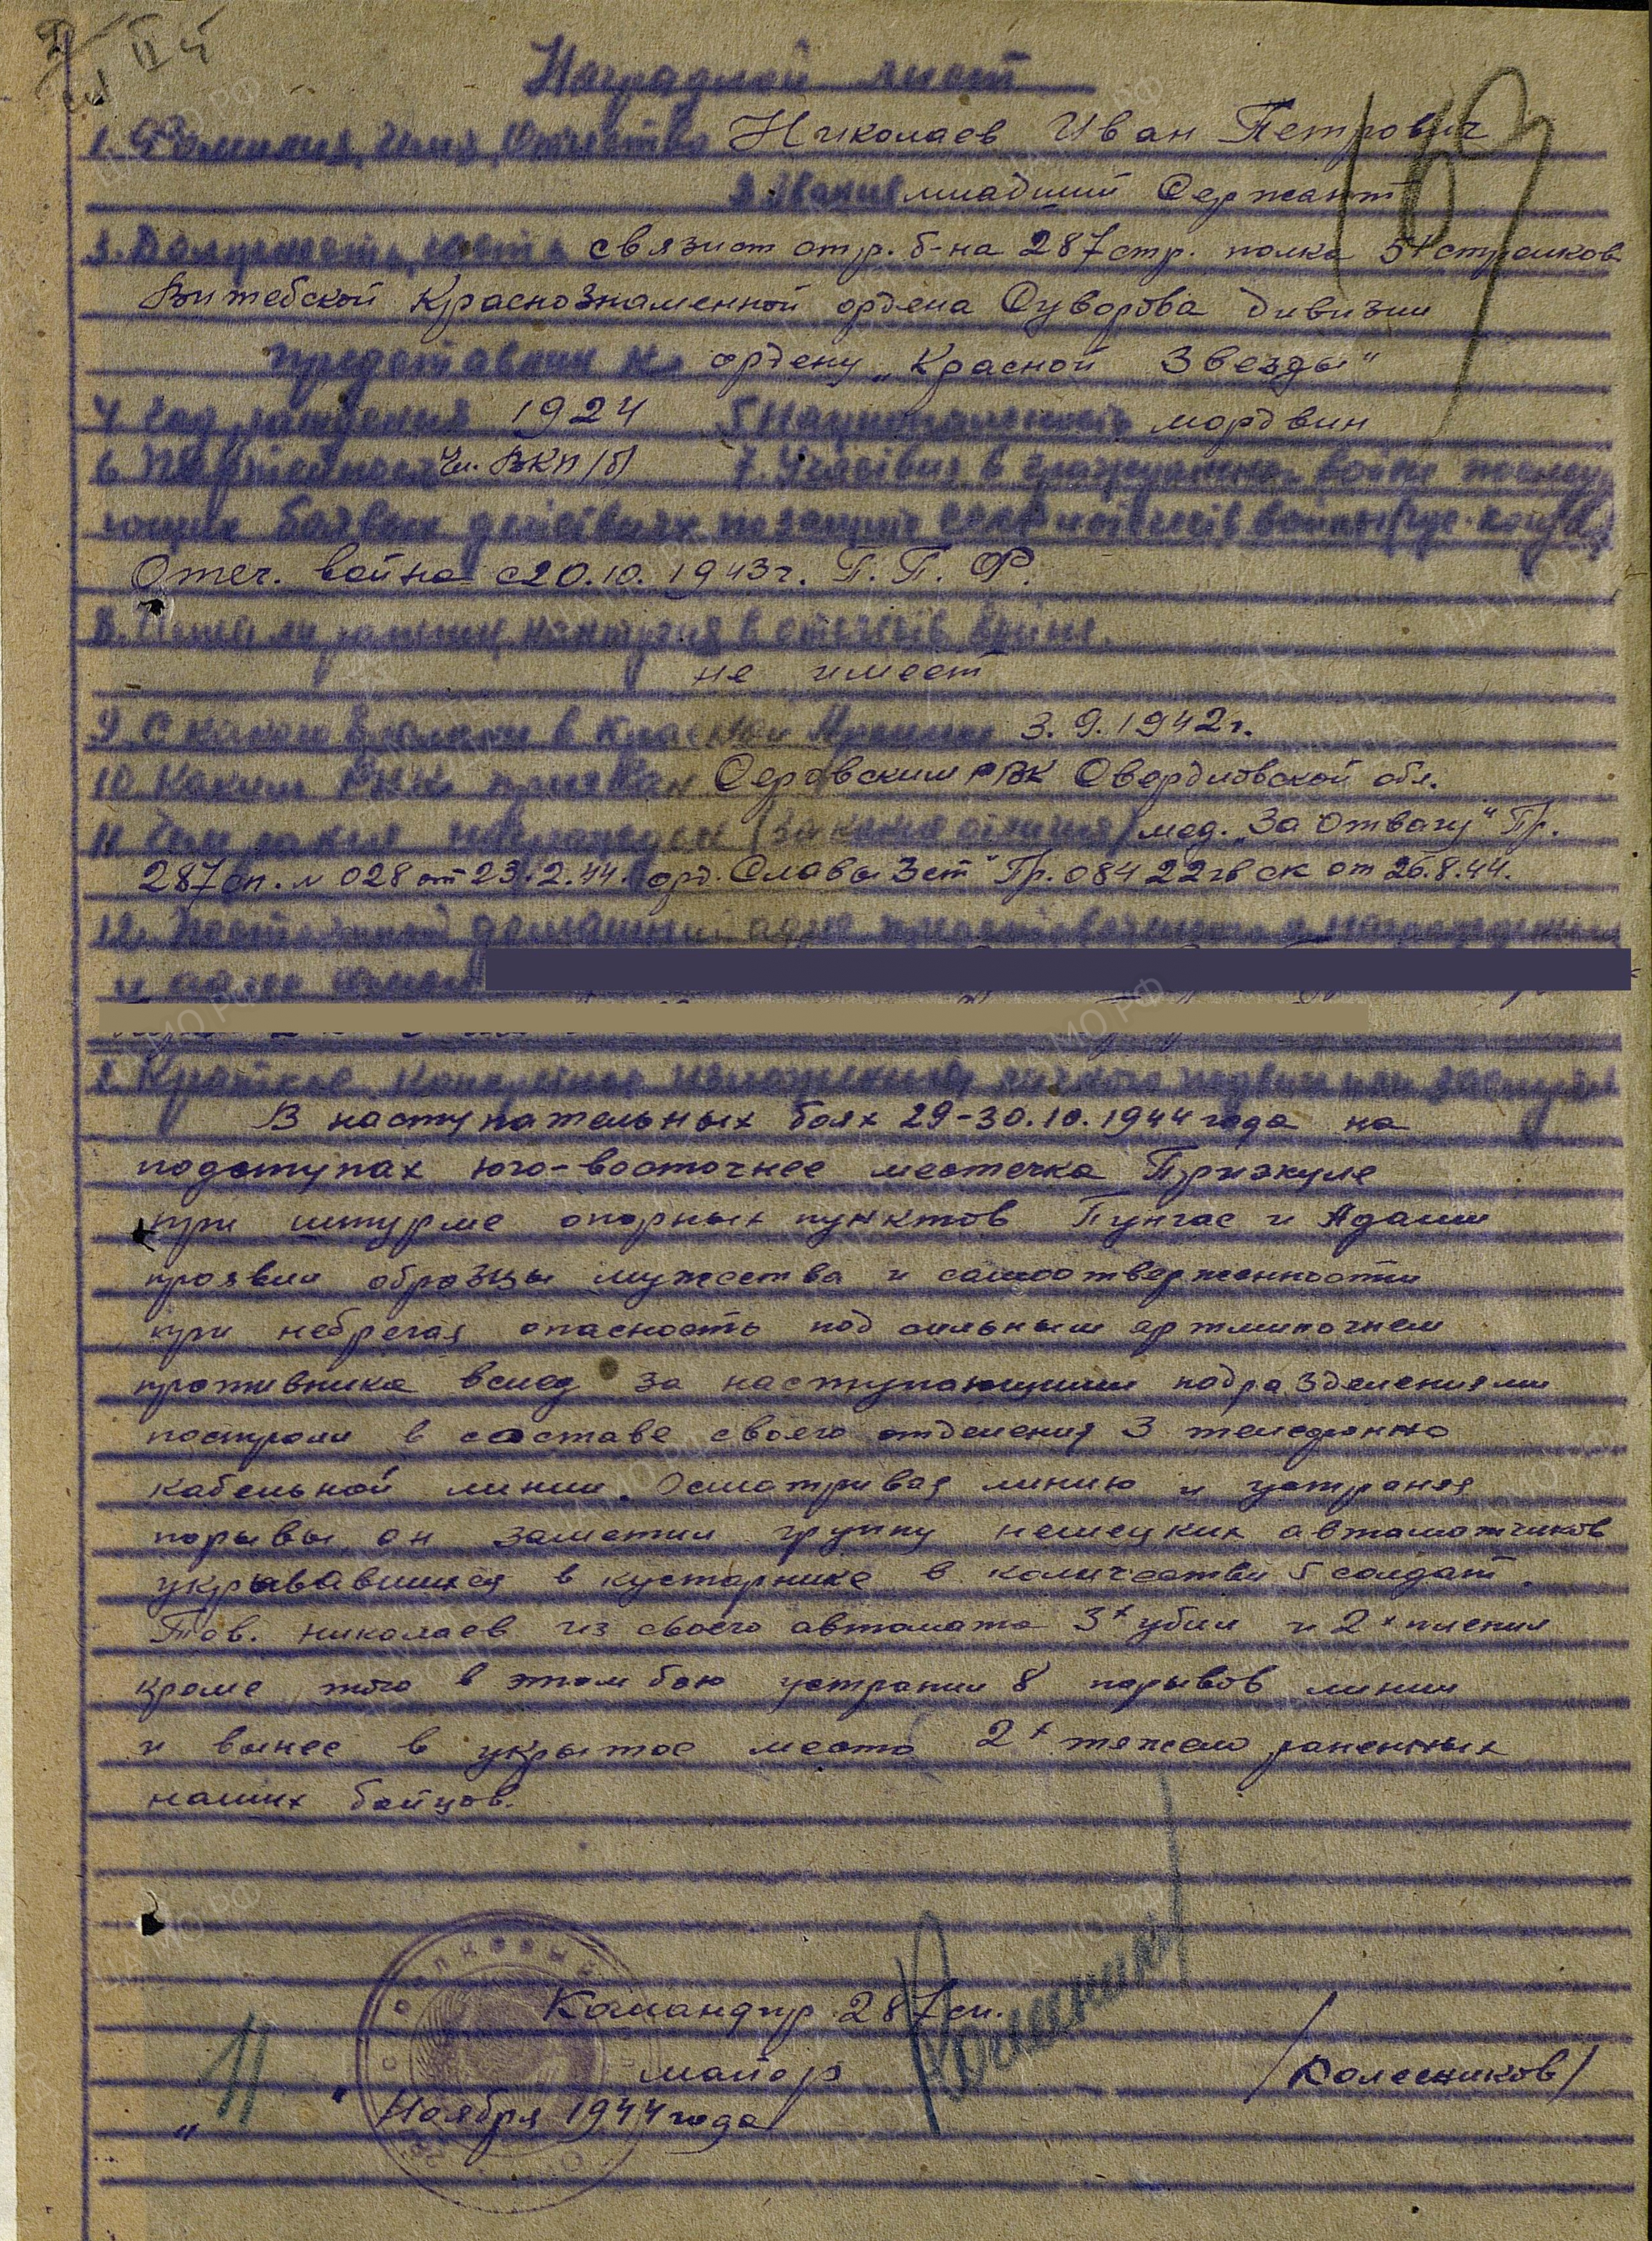 Наградной лист
1. Фамилия, Имя, Отчество Николаев Иван Петрович
2. Звание младший Сержант
3. Должность, часть связист стр. б-на 287 стр. полка 51 стрелков.
Витебской Краснознаменной ордена Суворова дивизии
представлен к ордену „Красной Звезды“
4. Год рождения 1924 5 Национальность мордвин
6 Партийность Чл. ВКП/б/ 7. Участвие в гражданск. войне последу
ющих боевых действиях по защите СССР и отечеств. войны (где. когда)
Отеч. война с 20.10.1943г. П. П. Ф.
8. Имеет ли ранения, контузия в отечеств. войне.
не имеет
9. С какого времени в Красной Армии 3.9.1942г.
10 Каким РВК призван Серовским РВК Свердловской обл.
11 Чем ранее награжден (за какие отличия) мед. „За Отвагу“ Пр.
287 сп. № 028 от 23.2.44. орд. Славы 3 ст" Пр. 084 22 гв ск от 26.8.44.
12. Постоянный домашний адрес представленного к награждению
и адрес семьи
Краткое, конкретное изложение личного подвига или заслуг
В наступательных боях 29-30.10.1944 года на
подступах юго-восточнее местечка Призкуле
при штурме опорных пунктов Пунгас и Адами
проявил образцы мужества и самоотверженности
при небрегая опасность под сильным артминогнем
противника вслед за наступающими подразделениями
построил в составе своего отделения 3 телефонно
кабельной линии. Осматривая линию и устраняя
порывы, он заметил группу немецких автоматчиков
укрывавшихся в кустарнике в количестве 5 солдат.
Тов. Николаев из своего автомата 3х убил и 2х пленил
кроме того в этом бою устранил 8 порывов линии
и вынес в укрытое место 2х тяжело раненных
наших бойцов.
Командир 287 сп.
майор /Колесников/
„11" Ноября 1944 года
169